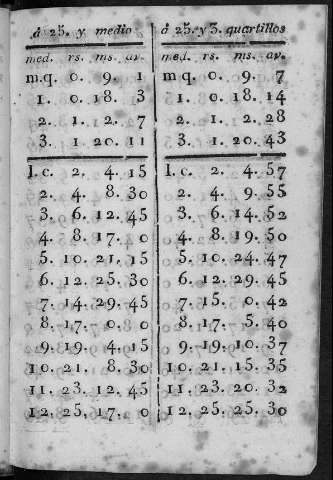 á 25. y medio
med. rs. ms. av.
m.q. 0. 9. 1
1. 0. 18. 3
2. 1. 2. 7
3. 1. 20. 11
1. c. 2. 4. 15
2. 4. 8. 30
3. 6. 12. 45
4. 8. 17. 0
5. 10. 21. 15
6. 12. 25. 30
7. 14. 29. 45
8. 17. 0. 0
9. 19. 4. 15
10. 21. 8. 30
11. 23. 12. 45
12. 25. 17. 0
á 25. y 3. quartillos
med. rs. ms. av.
mq. 0. 9. 7
1. 0. 18. 14
2. 1. 2. 28
3. 1. 20. 43
1. c. 2. 4. 57
2. 4. 9. 55
3. 6. 14. 52
4. 8. 19. 50
5. 10. 24. 47
6. 12. 29. 45
7. 15. 0. 42
8. 17. 5. 40
9. 19. 10. 37
10. 21. 15. 35
11. 23. 20. 32
12. 25. 25. 30